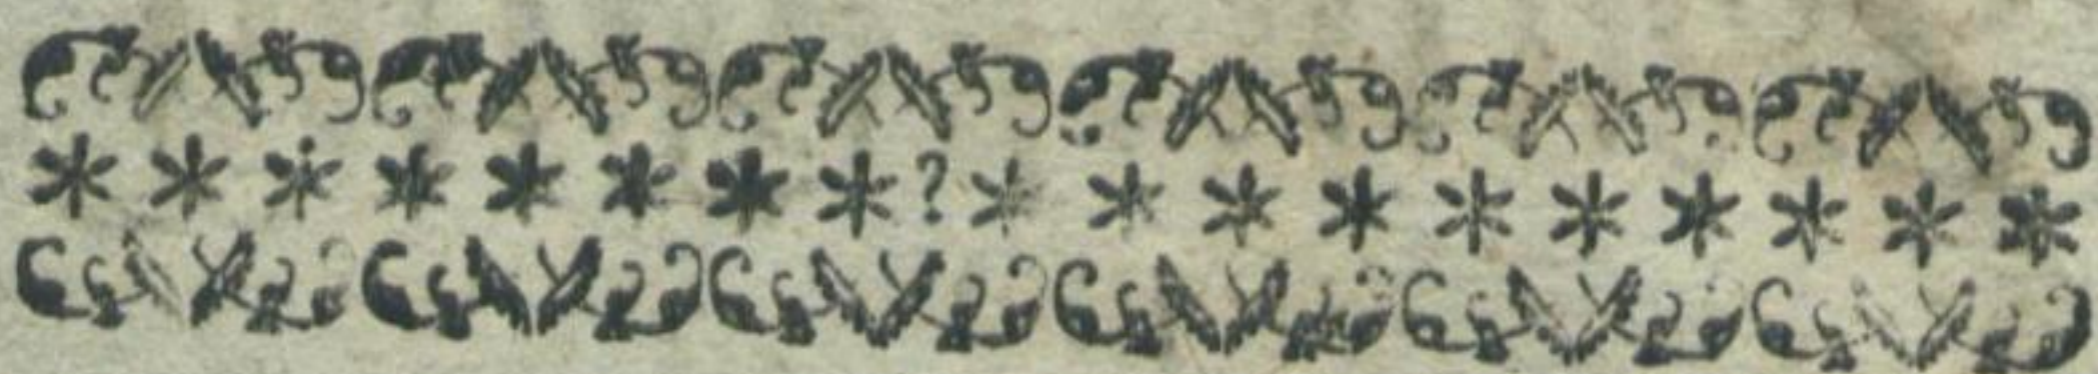 * * * * * * * * ? * * * * * * * * * *